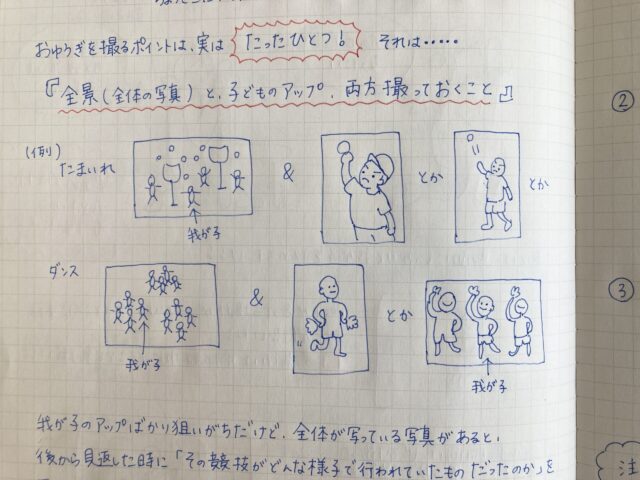 おゆうぎを撮るポイントは、実は たったひとつ! それは・・・・・
『全景(全体の写真)と、子どものアップ、両方撮っておくこと』
(例)
たまいれ & とか とか
我が子
ダンス & とか
我が子 我が子
我が子のアップばかり狙いがちだけど、全体が写っている写真があると、
後から見返した時に「その競技がどんな様子で行われていたものだったのか」を
②
③
注